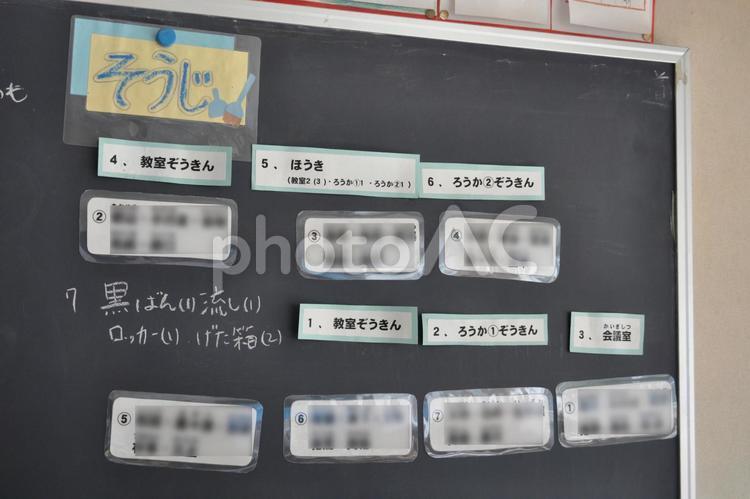 そうじ
4、教室ぞうきん
5、ほうき
(教室2 (3)・ろうか①1 ・ろうか②1)
6、ろうか②ぞうきん
②
③
④
photoAC
7 黒ばん(1)流し(1)
ロッカー(1) げた箱(2)
1、教室ぞうきん
2、ろうか①ぞうきん
かいぎしつ
3、会議室
⑤
⑥
⑦
①